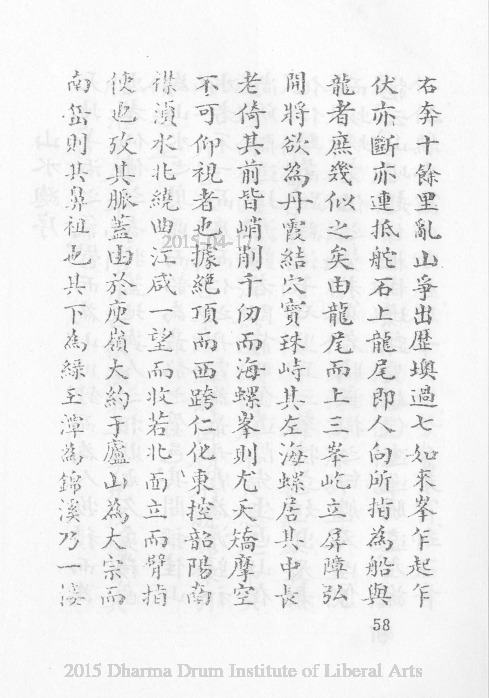 右奔十餘里亂山爭出歴墺過七如來峯乍起乍
伏亦斷亦連抵舵石上龍尾即人向所指為船與
龍者庶幾似之矣由龍尾而上三峯屹立屏障弘
開將欲為丹霞結穴寶珠峙其左海螺居其中長
老倚其前皆峭削千仞而海螺峯則尤夭矯摩空
不可仰視者也據絕頂而西跨仁化東控韶陽南
襟湞水北繞曲江咸一望而收若北面立而臂指
使也攷其脈蓋由於庾嶺大約于廬山為大宗而
南岳則其鼻祖也其下為綠玉潭為錦溪乃一溪
58
2015-04-17
2015 Dharma Drum Institute of Liberal Arts